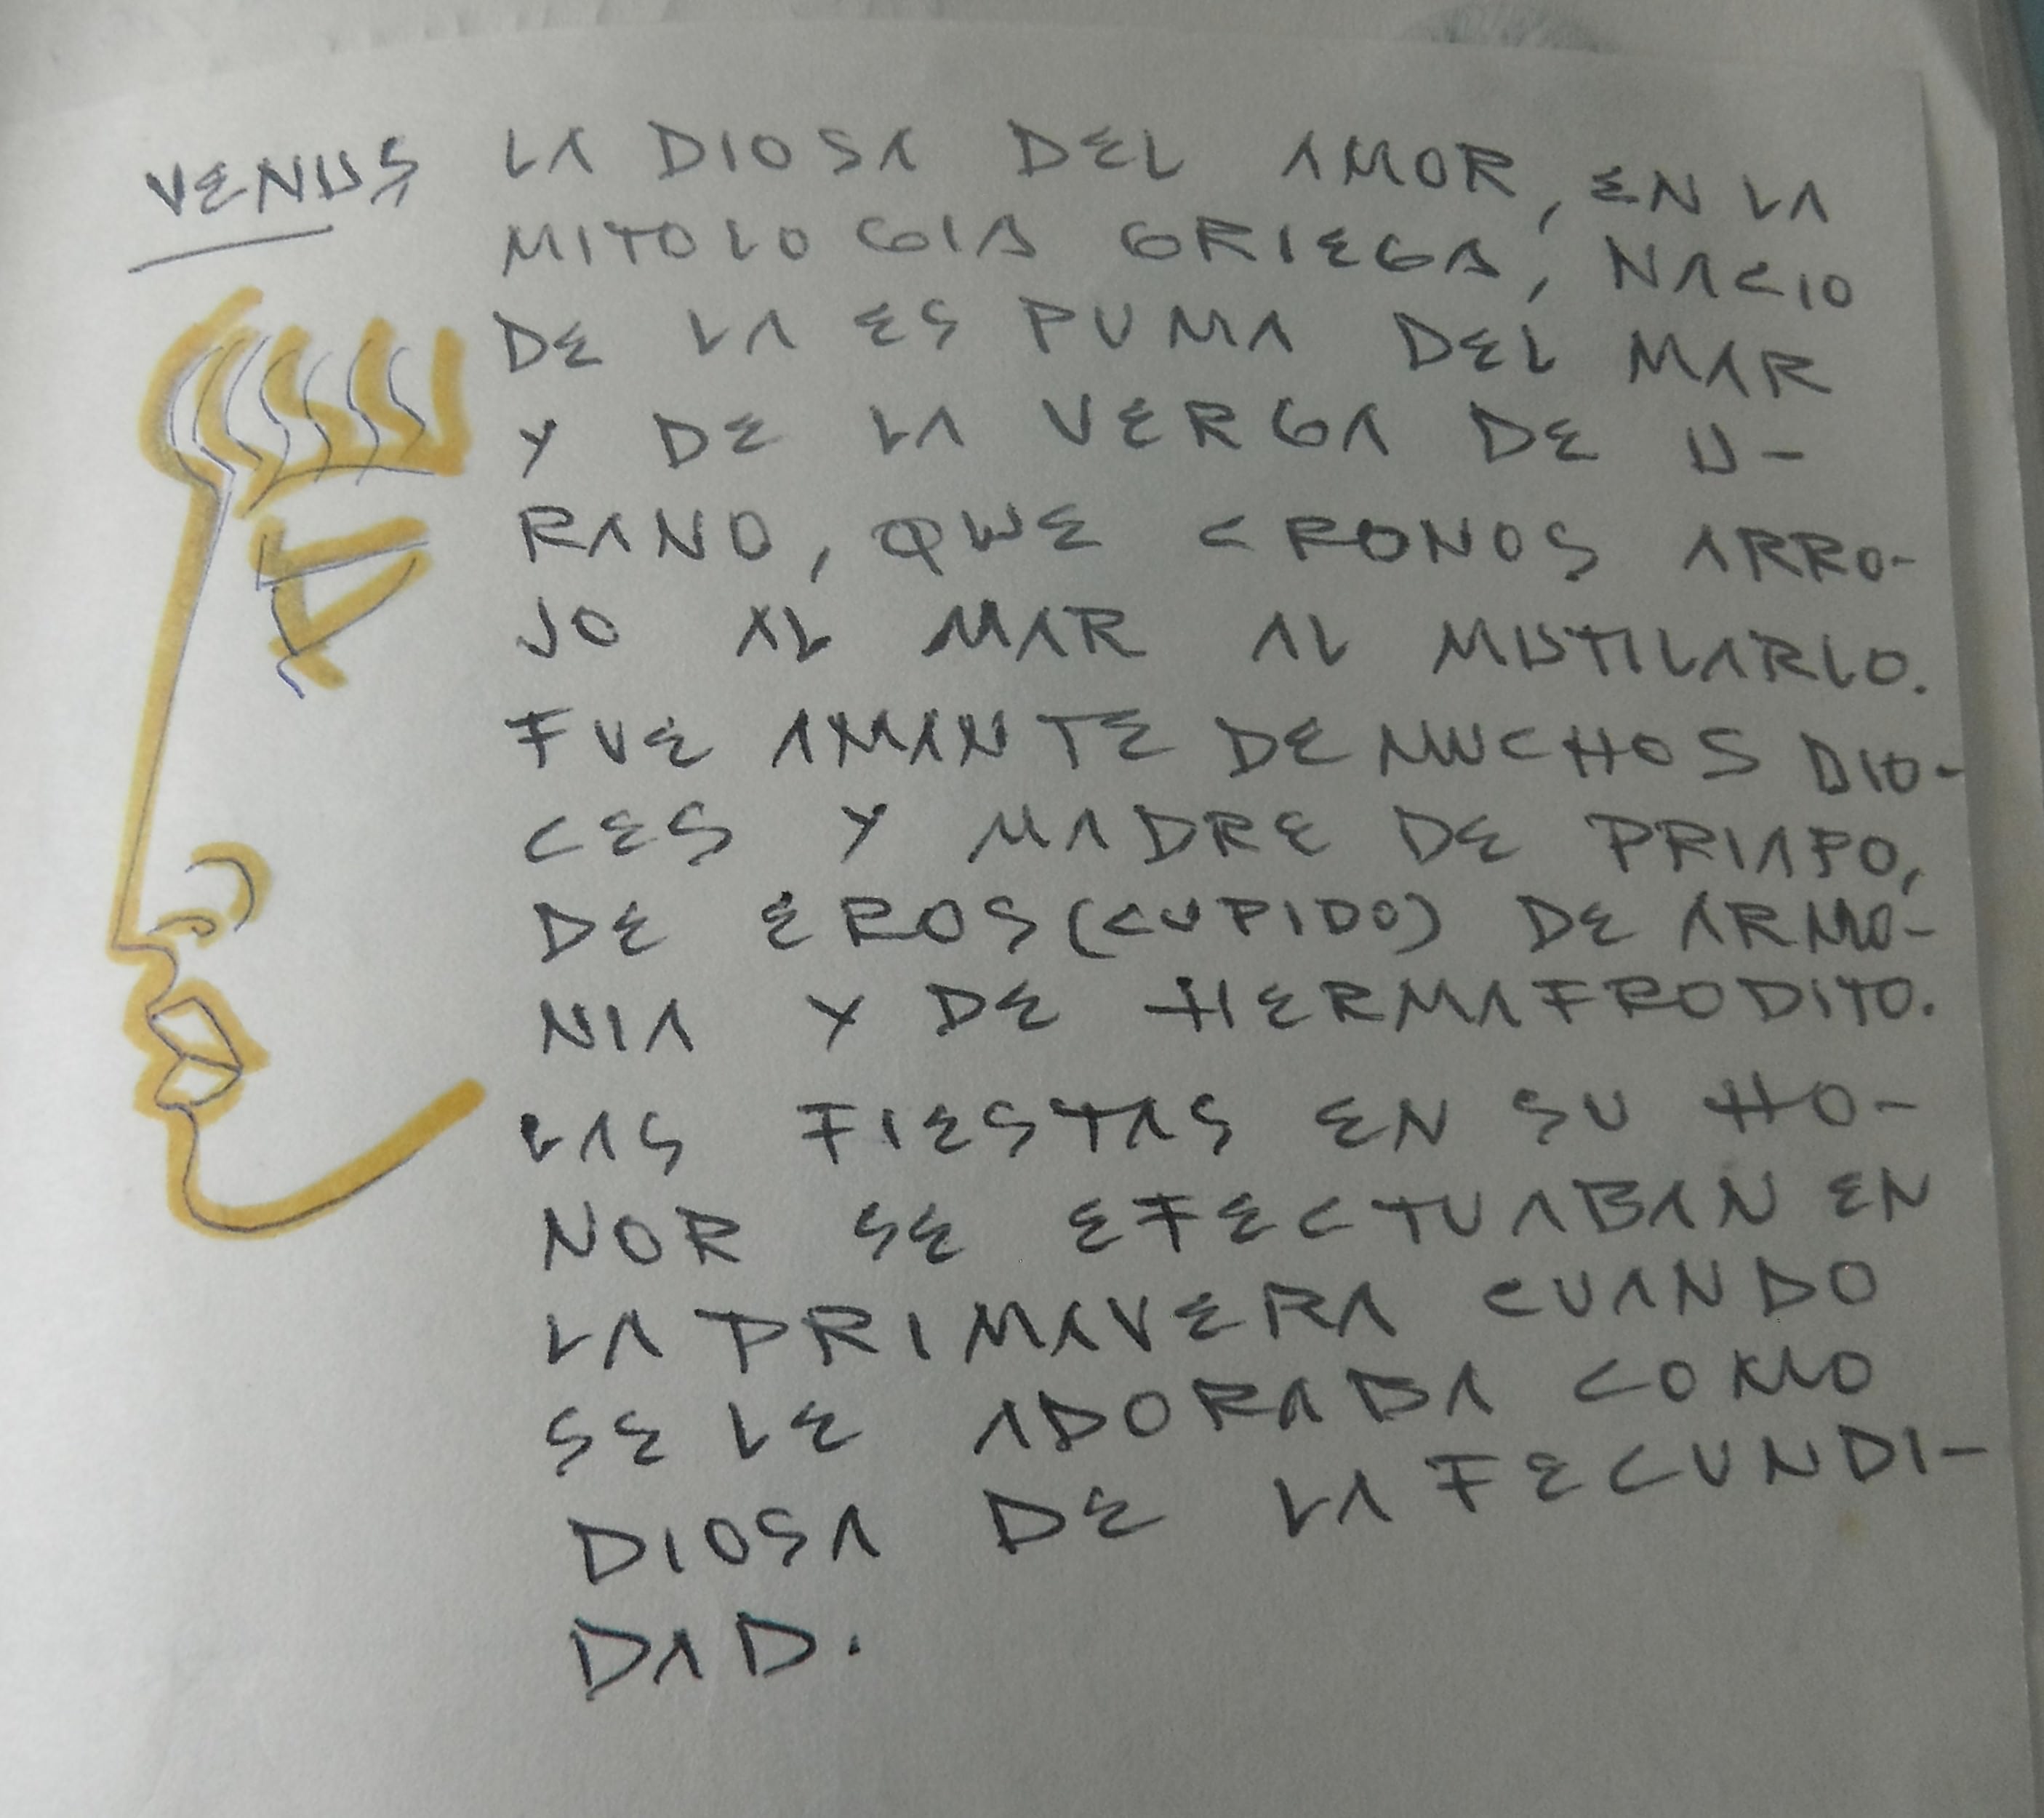 VENUS LA DIOSA DEL AMOR, EN LA
MITOLOGIA GRIEGA, NACIO
DE LA ESPUMA DEL MAR
Y DE LA VERGA DE U-
RANO, QUE CRONOS ARRO-
JO AL MAR AL MUTILARLO.
FUE AMANTE DE MUCHOS DIO-
CES Y MADRE DE PRIAPO,
DE EROS (CUPIDO) DE ARMO-
NIA Y DE HERMAFRODITO.
LAS FIESTAS EN SU HO-
NOR SE EFECTUABAN EN
LA PRIMAVERA CUANDO
SE LE ADORABA COMO
DIOSA DE LA FECUNDI-
DAD.